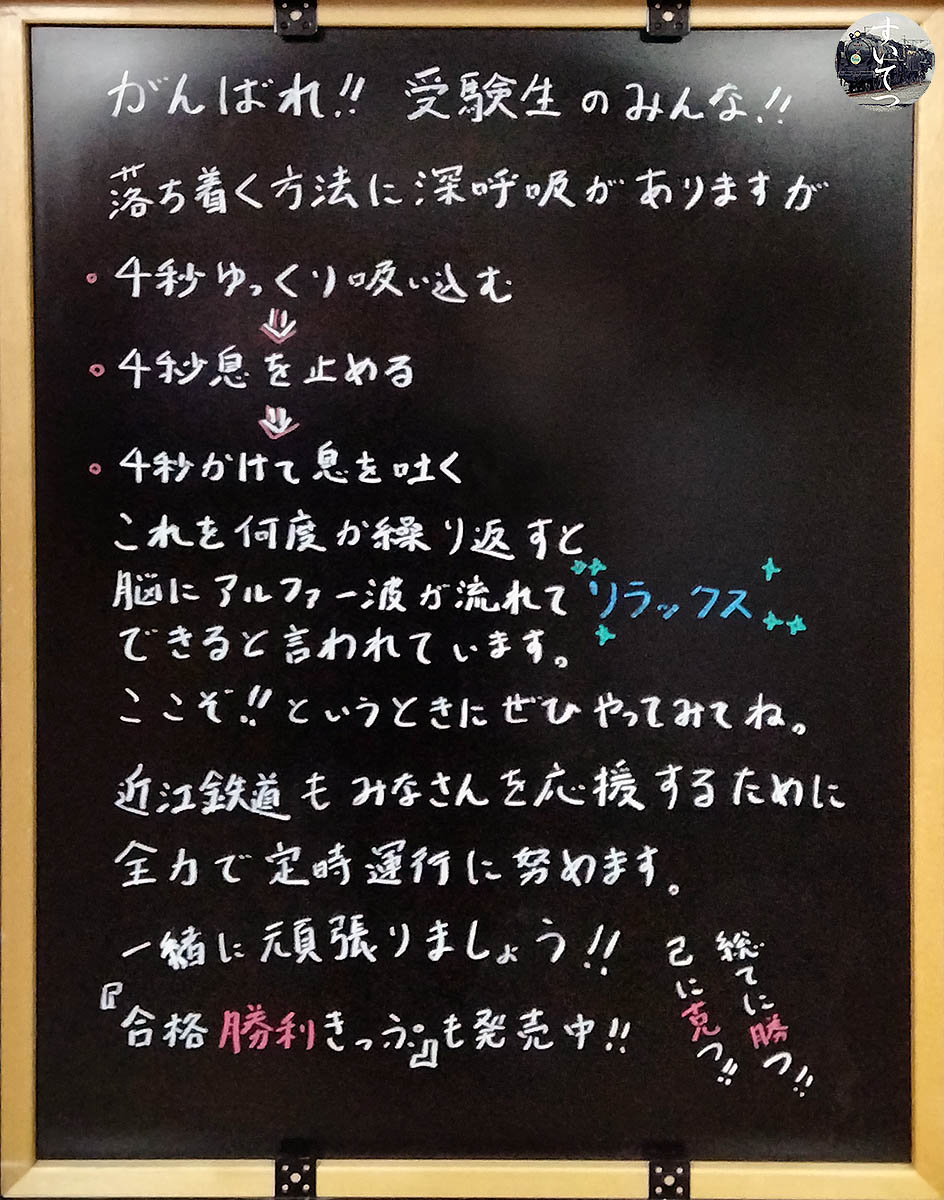 すいてつ
がんばれ!! 受験生のみんな!!
落ち着く方法に深呼吸がありますが
・4秒ゆっくり吸い込む
⇓
・4秒息を止める
⇓
・4秒かけて息を吐く
これを何度か繰り返すと
脳にアルファー波が流れてリラックス
できると言われています。
ここぞ!!というときにぜひやってみてね。
近江鉄道もみなさんを応援するために
全力で定時運行に努めます。
一緒に頑張りましょう!!
『合格勝利きっぷ』も発売中!!
総てに勝つ!!
己に克つ!!